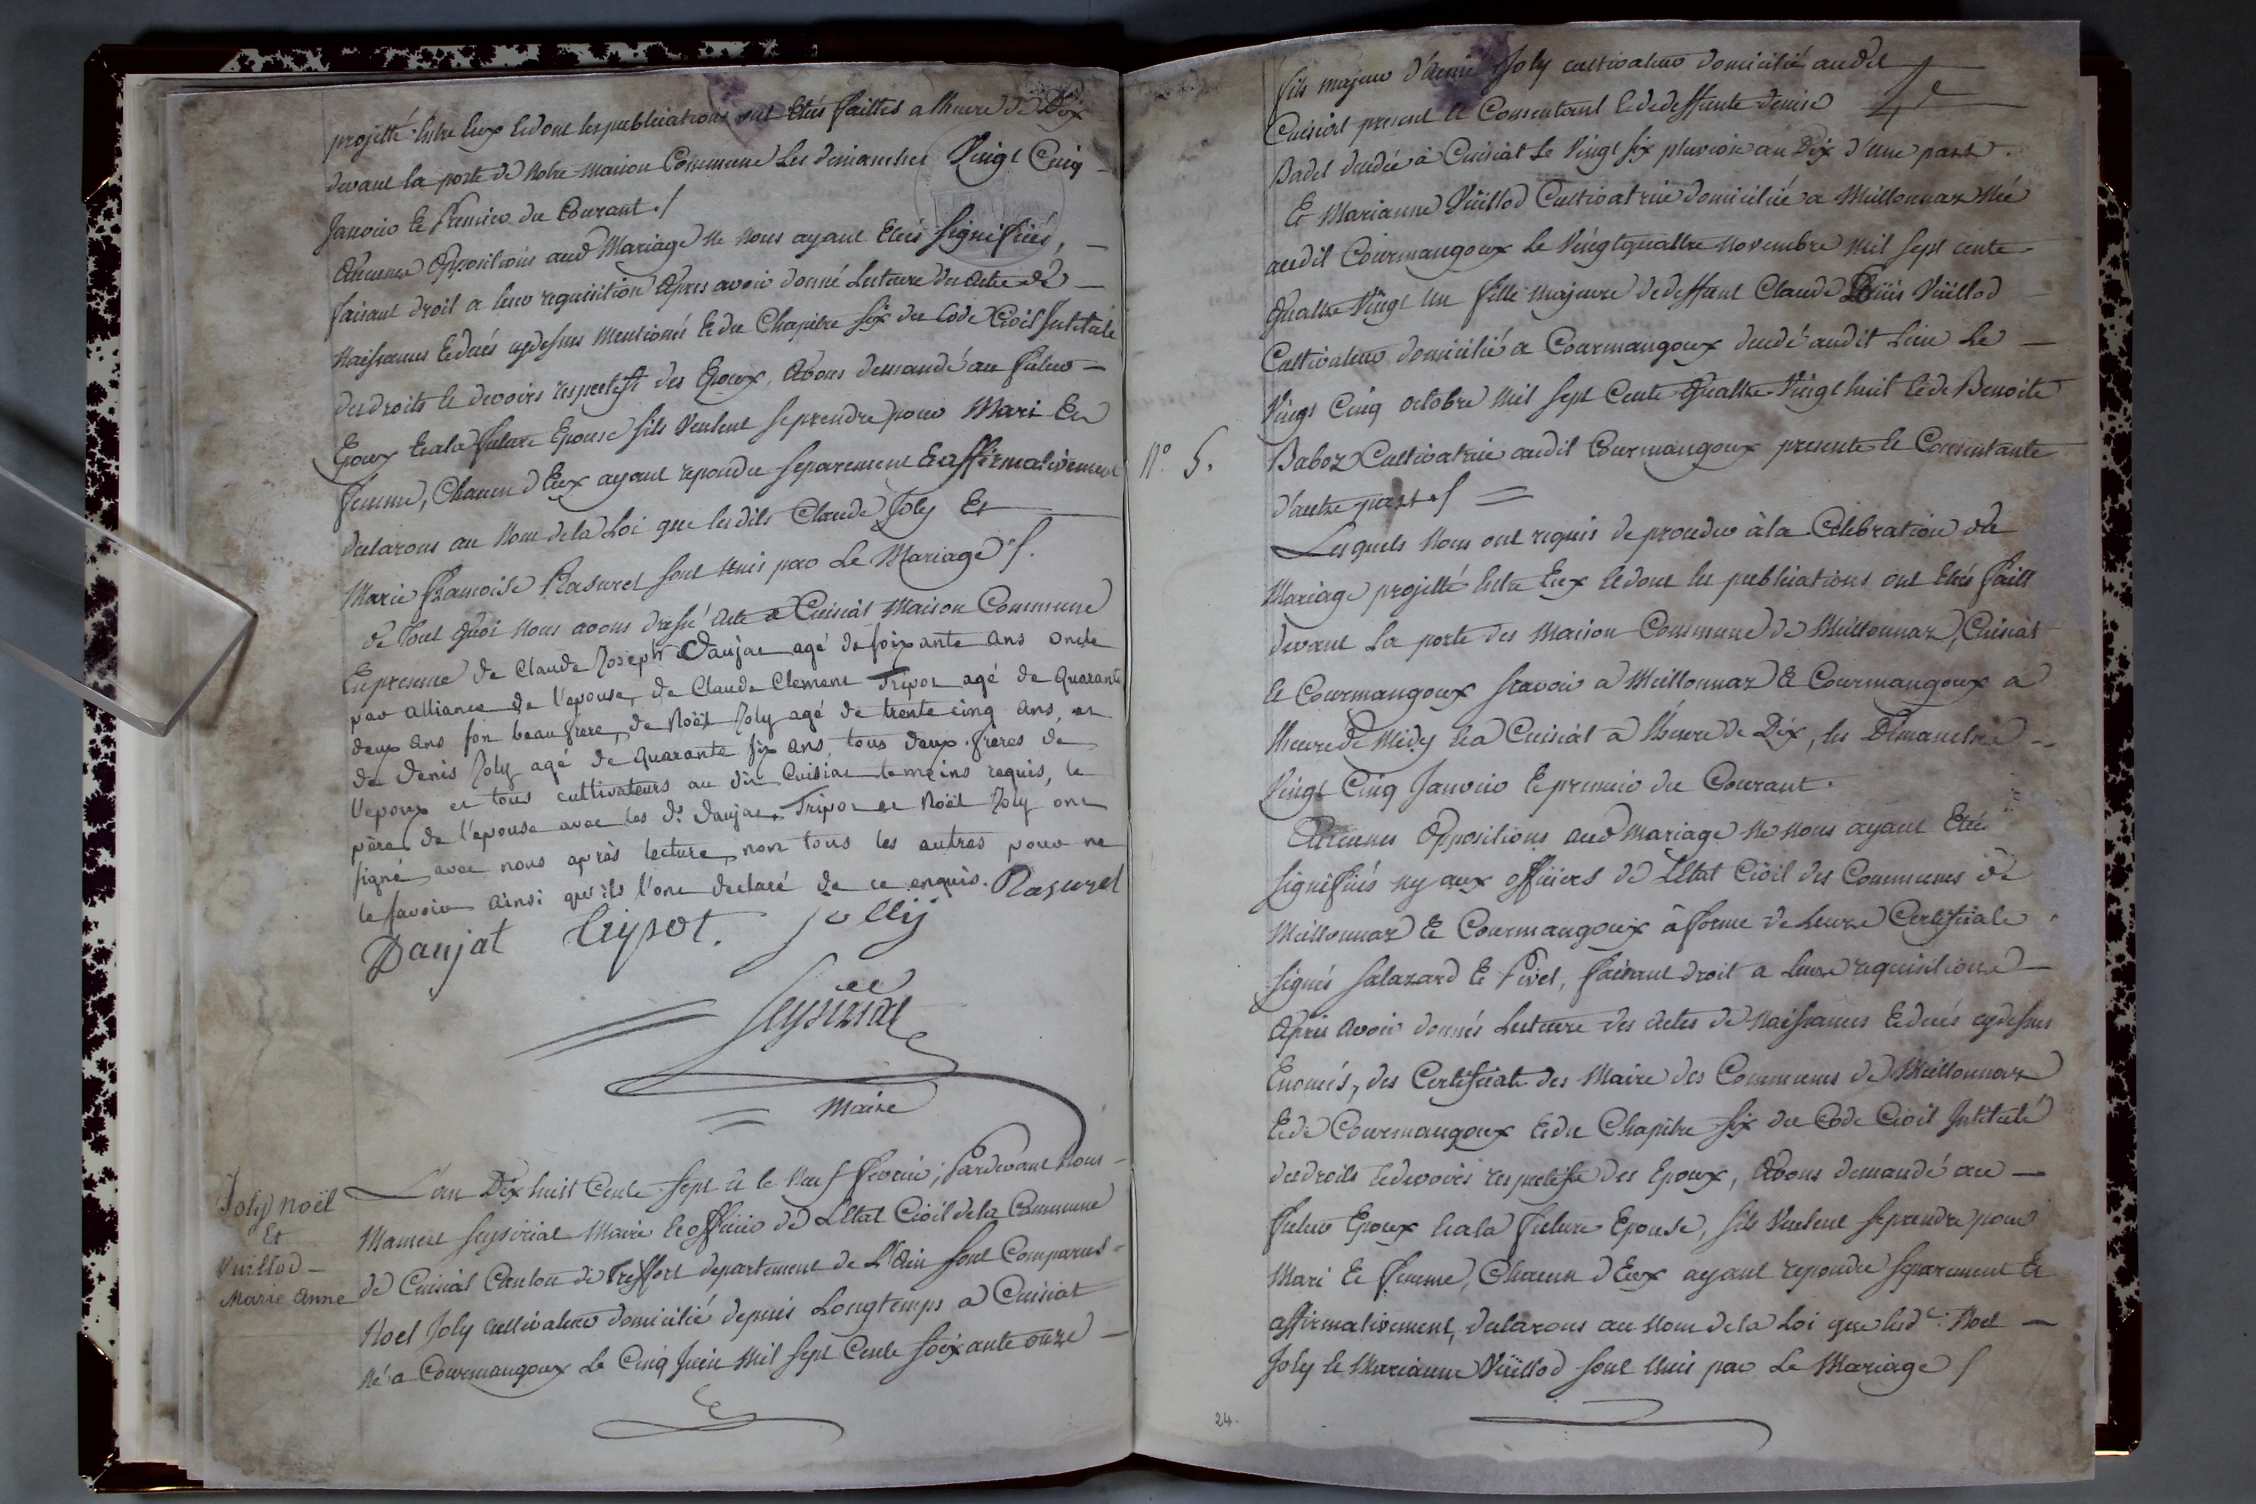 projetté entre Eux et dont les publications ont Etés faittes a lheure de Dix
devant la porte de Notre Maison Commune Les dimanches Vingt Cinq
Janvier et Premier du Courant ./
Aucunes Oppositions aud Mariage Ne Nous ayant Etés Signifiés, —
faisant droit a leur requisition Après avoir donné Lecture des Actes de —
Naissances et décés cy dessus Mentionés et du Chapitre Six du Code Civil Intitulé
des droits et devoirs respectifs des Epoux, Avons demandé au futur —
Epoux et a la future Epouse s'ils Veulent se prendre pour Mari Et
femme, Chacun d'Eux ayant repondu separement Et affirmativement
declarons au Nom de la Loi que les dits Claude Joly Et —
Marie Françoise Rasurel sont Unis par Le Mariage ./.
de Tout Quoi Nous avons dressé Acte a Cuisiat Maison Commune
En presence de Claude Joseph Daujat agé de soixante ans oncle
par alliance de l'epouse, de Claude Clement Tripoz agé de Quarante
deux ans son beau frere, de Noël Joly agé de trente cinq ans, et
de Denis Joly agé de Quarante six ans, tous deux freres de
l'epoux et tous cultivateurs au dit Cuisiat temoins requis, le
père de l'epouse avec les ds Daujat, Tripoz et Noël Joly ont
signé avec nous après lecture, non tous les autres pour ne
le savoir ainsi qu'ils l'ont declaré de ce enquis. Rasurel
Daujat Tripot. Jolly
Seyssiriat
Maire
Joly Noël
Et
Vuillod —
Marie Anne
L'an Dix huit Cents Sept Et le Neuf Fevrier, Pardevant Nous —
Mamert Seyssiriat Maire Et officier de L'Etat Civil de la Commune
de Cuisiat Canton de Treffort departement de L'Ain sont Comparus
Noel Joly cultivateur domicilié depuis Longtemps a Cuisiat
Né a Courmangoux Le Cinq Juin Mil Sept Cents Soixante onze —
fils majeur d' Joly cultivateur domicilié audit
Cuisiat present et Consentant et de deffunte Denise
Badel decedée à Cuisiat Le Vingt six pluviose an Dix d'une part.
Et Marianne Vuillod Cultivatrice domiciliée a Meillonnaz Née
audit Courmangoux Le Vingt quattre Novembre Mil Sept Cents
Quattre Vingt Un fille Majeure de deffunt Claude Louis Vuillod
Cultivateur domicilié a Courmangoux decedé audit Lieu Le —
Vingt Cinq octobre Mil Sept Cents Quattre Vingt huit et de Benoite
N° 5.
Baboz Cultivatrice audit Courmangoux presente et Consentante
d'autre part ./ =
Lesquels Nous ont requis de proceder à la Celebration du
Mariage projetté Entre Eux et dont les publications ont Etés faitt
devant La porte des Maison Commune de Meillonnaz, Cuisiat
et Courmangoux scavoir a Meillonnaz & Courmangoux a
l'heure de Midy et a Cuisiat a l'heure de Dix, les Dimanches —
Vingt Cinq Janvier et premier du Courant.
Aucunes Oppositions aud Mariage Ne Nous ayant Etés
signifiés ny aux officiers de L'Etat Civil des Communes de
Meillonnaz & Courmangoux à forme de Leurs Certificats
signés Salazard et Pivet, faisant droit a Leurs requisitions —
Après Avoir donnés Lecture des Actes de Naissances et decés cy dessus
Enoncés, des Certificats des Maire des Communes de Meillonnaz
et de Courmangoux et du Chapitre Six du Code Civil Intitulé
des droits et devoirs respectifs des Epoux, Avons demandé au —
futur Epoux et a la future Epouse, s'ils Veulent se prendre pour
Mari et femme, Chacun d'Eux ayant repondu separement Et
affirmativement, declarons au Nom de la Loi que lesd. Noel —
Joly et Marianne Vuillod sont Unis par Le Mariage /
24.